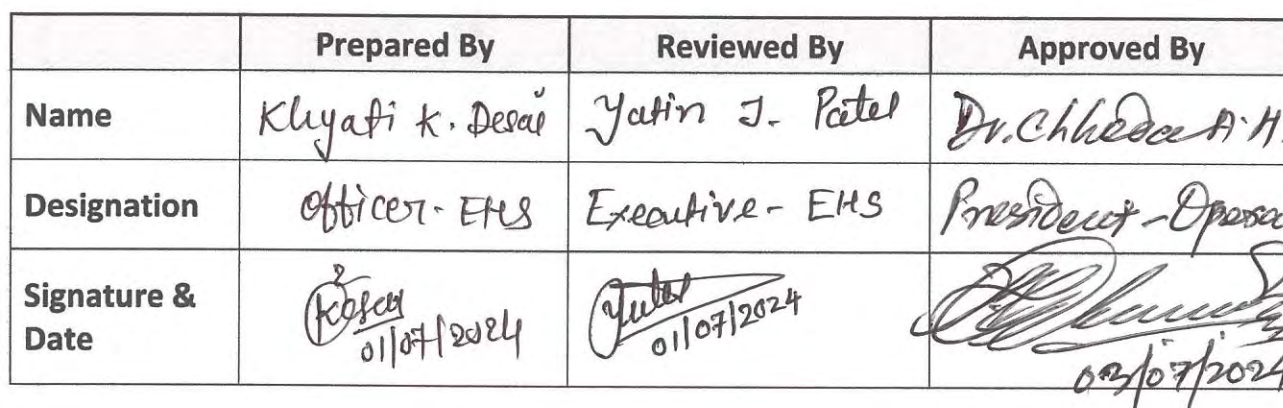 Prepared By Reviewed By Approved By
Name Khyati K. Desai Yatin J. Patel Dr. Chheda A. H.
Designation Officer - EHS Executive - EHS President - Opera
Signature &
Date 01/07/2024 01/07/2024 /07/2024